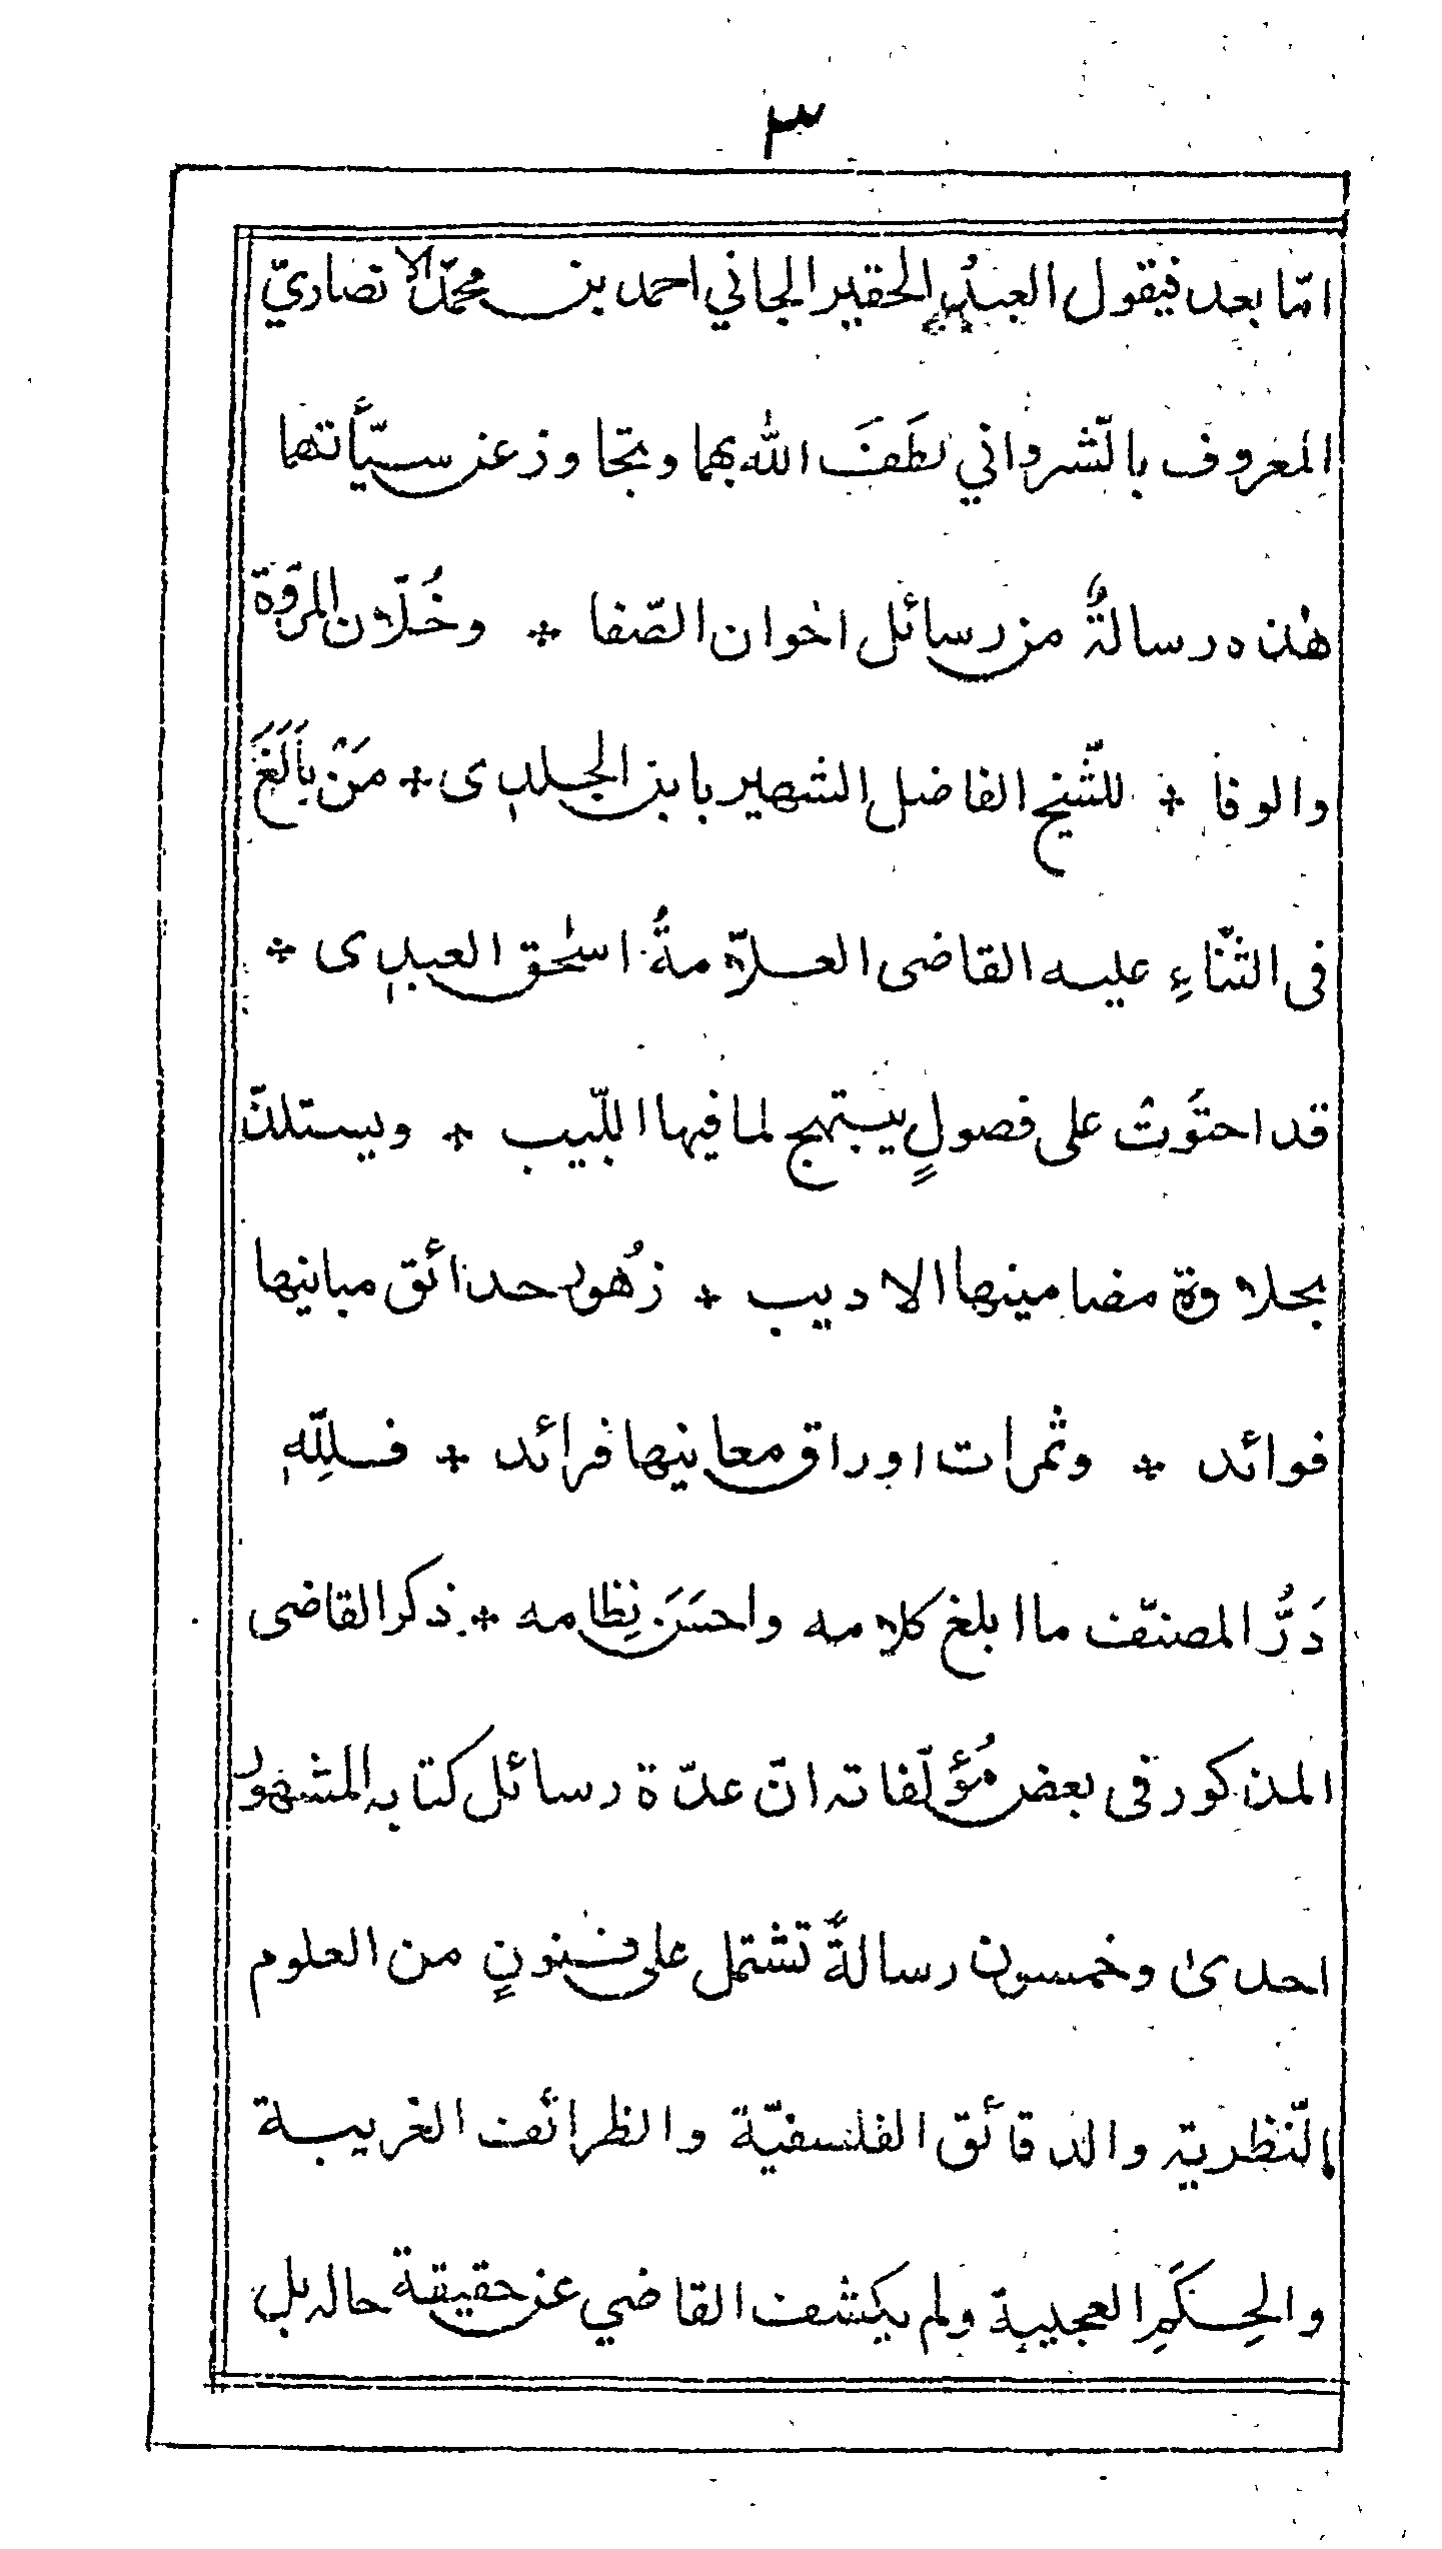 ٣
امّا بعد فيقول العبدُ الحقير الجاني احمد بن محمّد الانصاريّ
المعروف بالشّرواني لطَفَ الله بهما وتجاوز عن سيّأتهما
هٰذه رسالةٌ من رسائل اخوان الصّفا * وخُلّان المروّة
والوفا * للشّيخ الفاضل الشهير بابن الجلدى * مَنْ بالَغَ
فى الثّناءِ عليه القاضى العلّامةُ اسحٰق العبدى *
قد احتوَت على فصولٍ يبتهج لما فيها اللّبيب * ويستلذّ
بحلاوة مضامينها الاديب * زُهور حدائق مبانيها
فوائد * وثمرات اوراق معانيها فرائد * فللّهِ
دَرُّ المصنّف ما ابلغ كلامه واحسَنَ نِظامه * ذكر القاضى
المذكور فى بعض مُؤلّفاته انّ عدّة رسائل كتابه المشهور
احدىٰ وخمسون رسالةً تشتمل على فنونٍ من العلوم
النّظرية والدقائق الفلسفيّة والظرائف الغريبة
والحِكَمِ العجيبة ولم يكشف القاضي عن حقيقة حاله بل